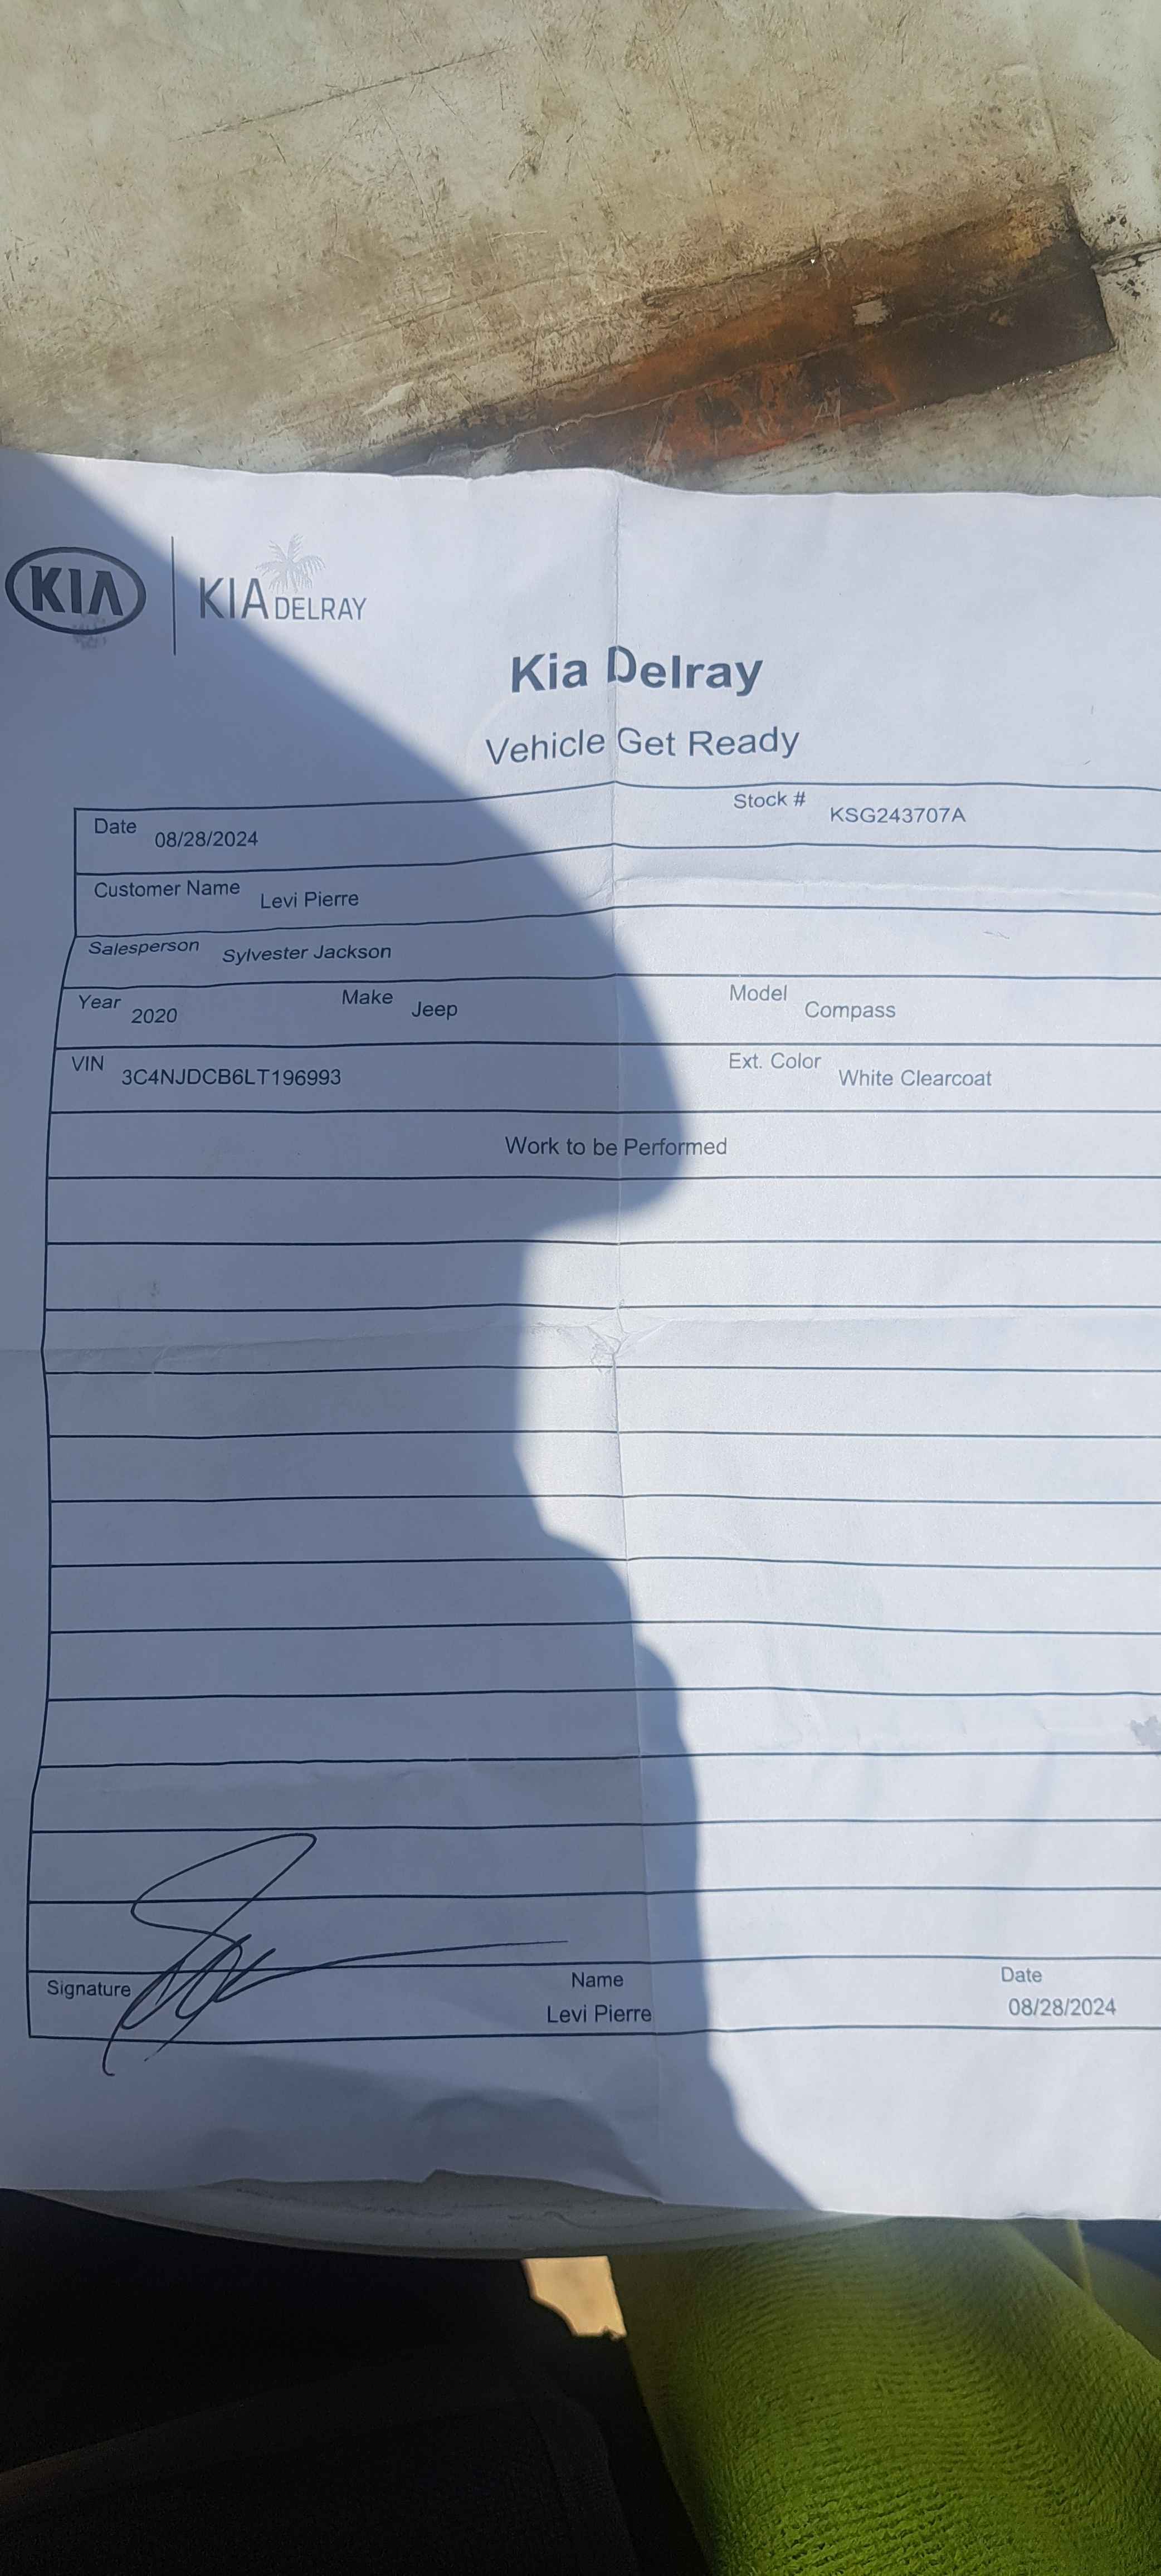 KIA
KIA DELRAY
Kia Delray
Vehicle Get Ready
Date 08/28/2024 Stock # KSG243707A
Customer Name Levi Pierre
Salesperson Sylvester Jackson
Year 2020 Make Jeep Model Compass
VIN 3C4NJDCB6LT196993 Ext. Color White Clearcoat
Work to be Performed
Signature Name Date
Levi Pierre 08/28/2024